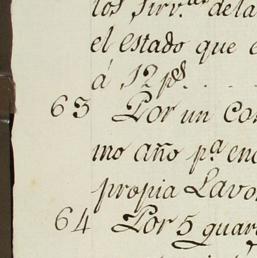 los Sirv.tes dela
el estado que e
á 12 ps. . . .
63 Por un Con
mo año pa. en
propia Lavo
64 Por 5 guar